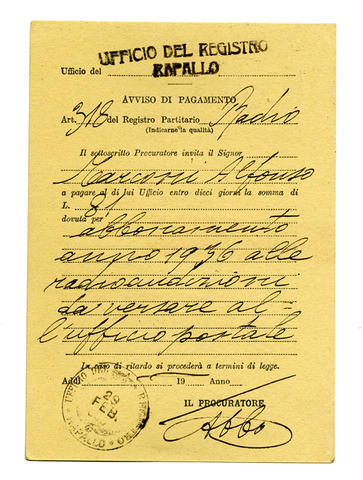 UFFICIO DEL REGISTRO
Ufficio del RAPALLO
AVVISO DI PAGAMENTO
Art. 318 del Registro Partitario Radio
(Indicarne la qualità)
Il sottoscritto Procuratore invita il Signor
Alfonso
a pagare al di lui Ufficio entro dieci giorni la somma di
L. 81
dovuta per abbonamento
anno 1936 alle
radioaudizioni
da versare al-
l'ufficio postale
In caso di ritardo si procederà a termini di legge.
Addì 19 Anno
UFFICIO DEL REGISTRO
RAPALLO
IL PROCURATORE
Abbo